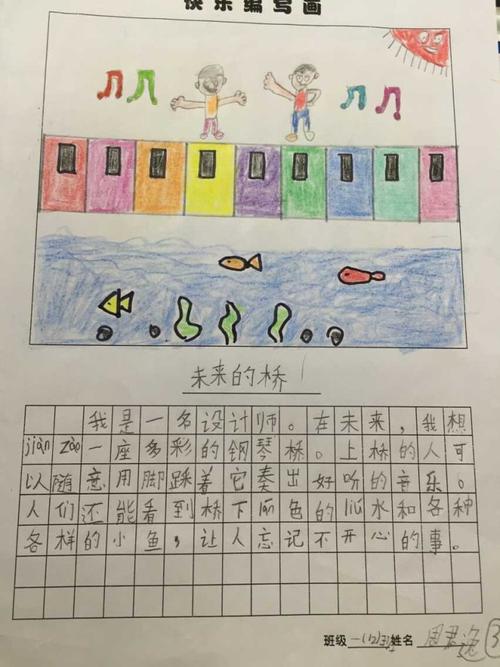 快乐编写画
未来的桥
我是一名设计师。在未来，我想
jiàn zào一座多彩的钢琴桥。上桥的人可
以随意用脚踩着它奏出好听的音乐。
人们还能看到桥下的水和各种
各样的小鱼，让人忘记不开心的事。
班级 一(12)班 姓名 周君逸
3